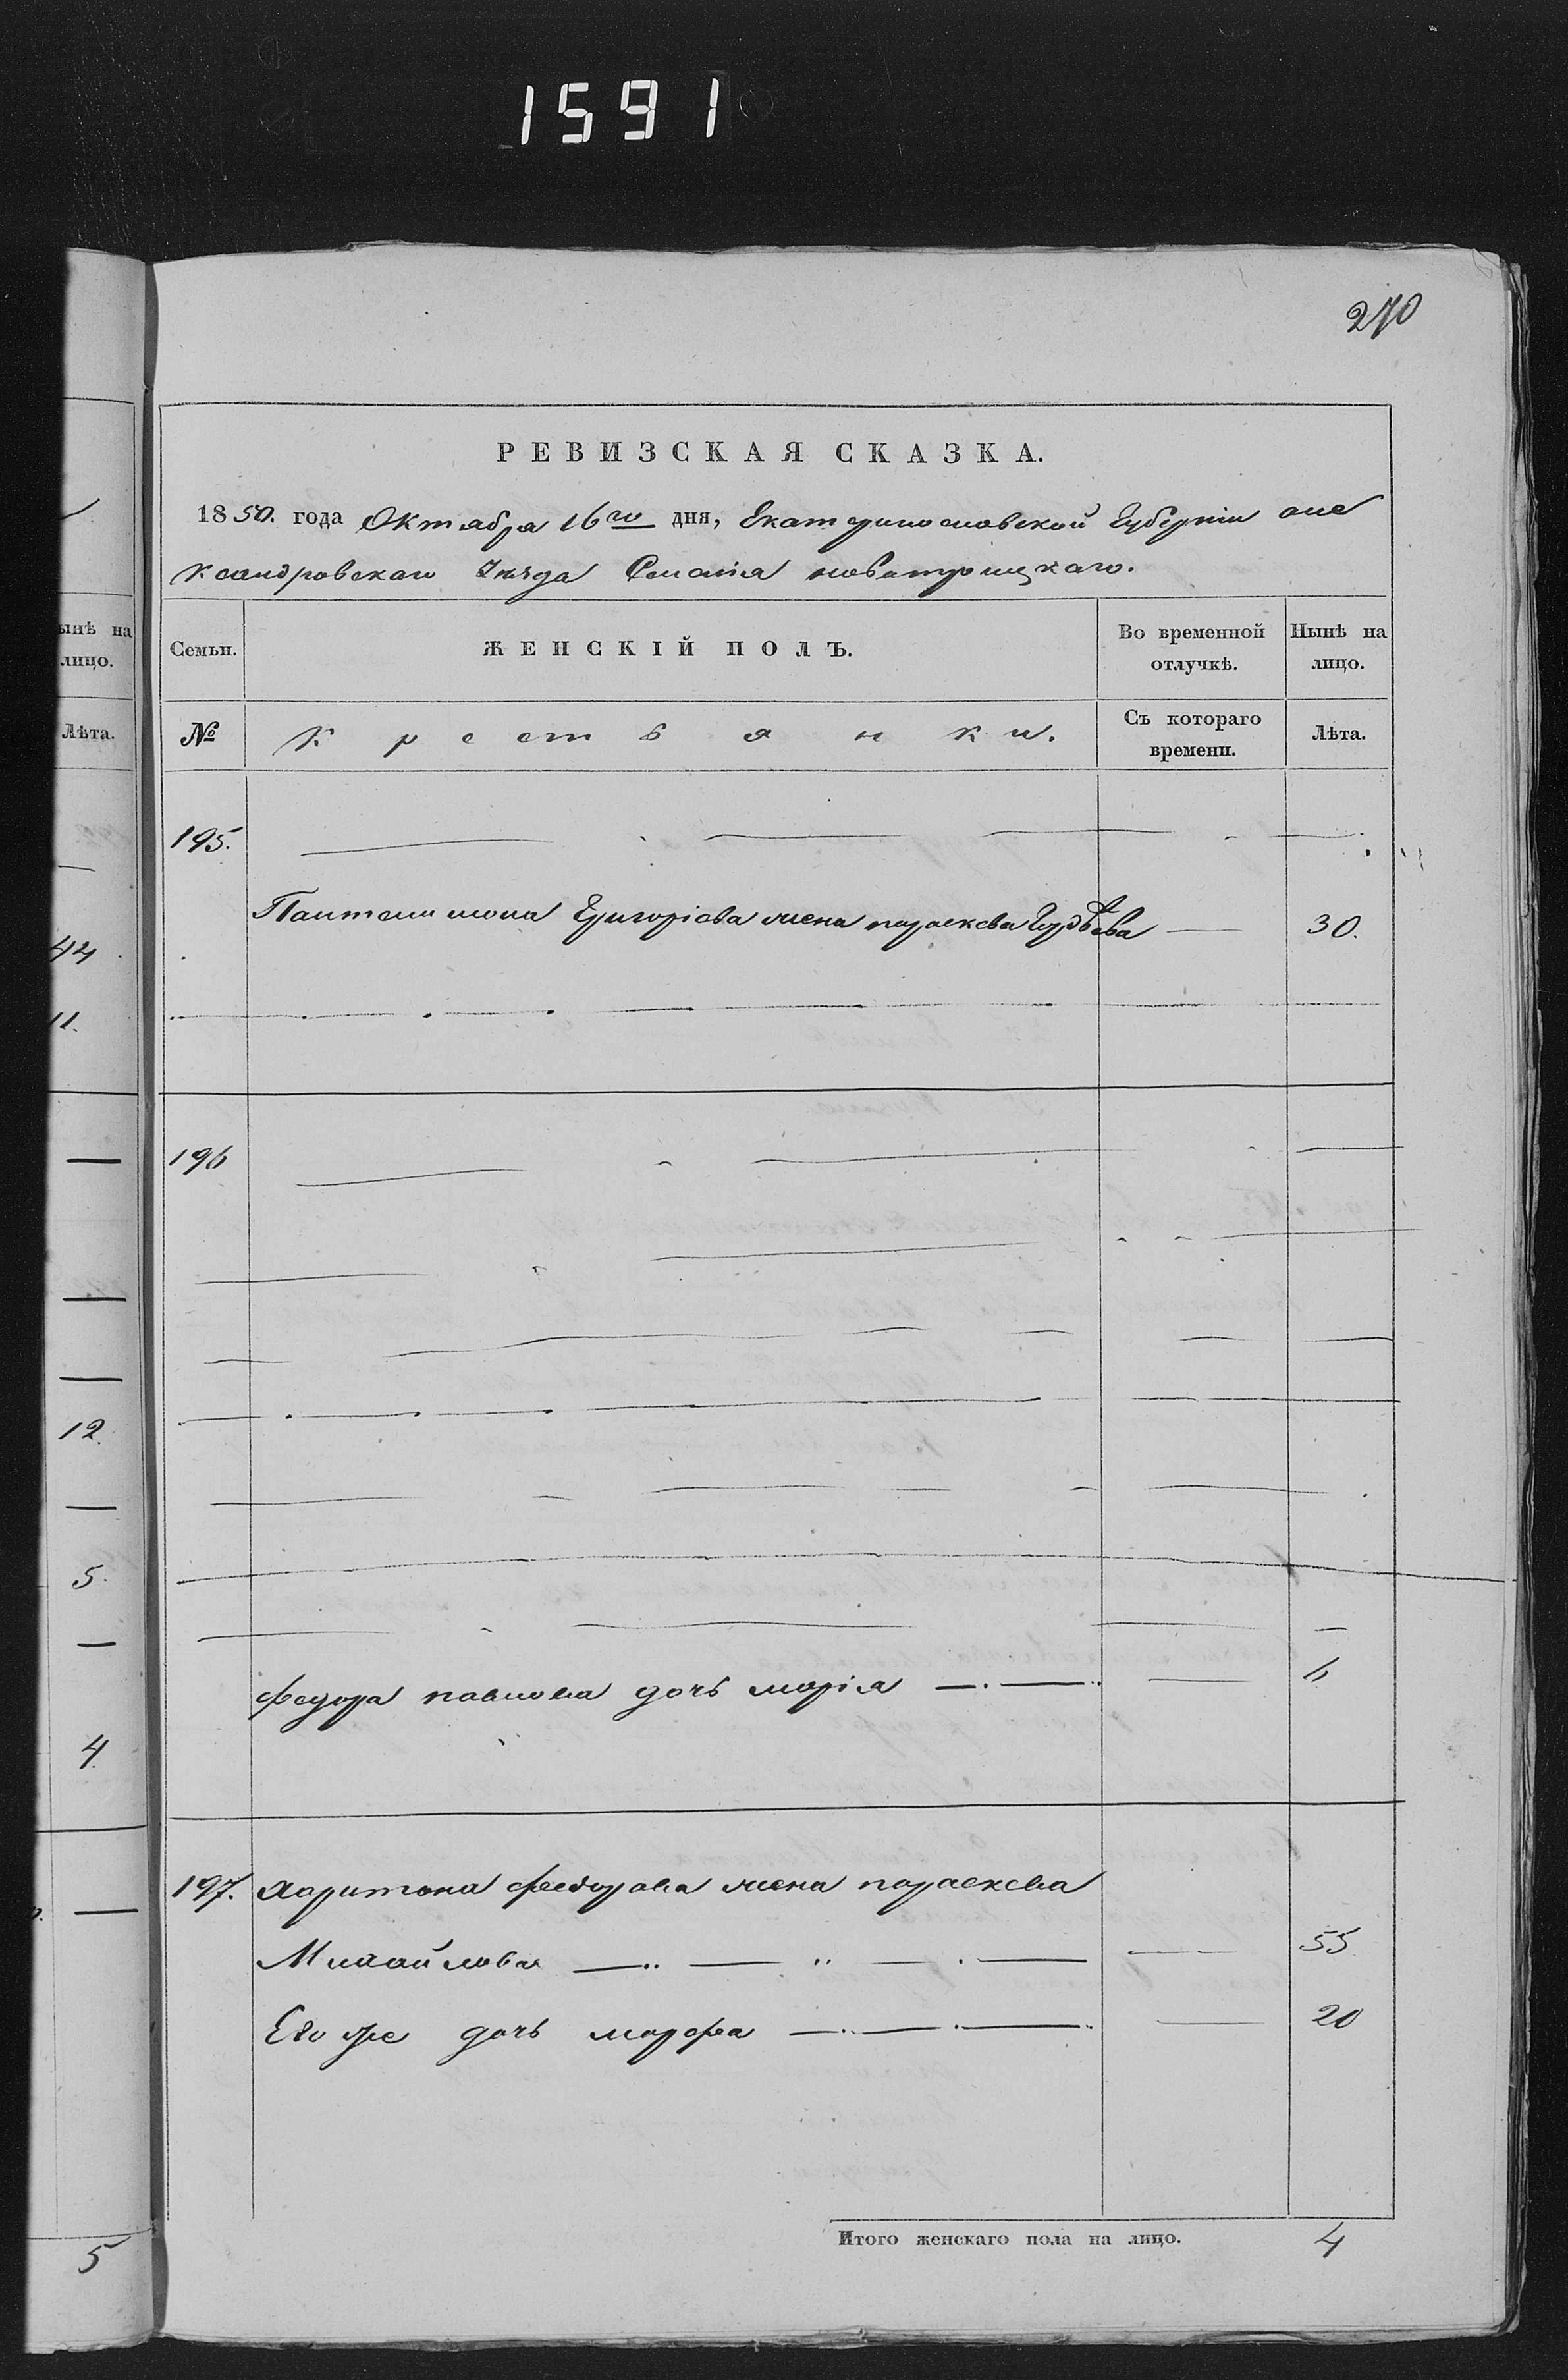 1591
270
РЕВИЗСКАЯ СКАЗКА.
1850. года Октября 16го дня, Екатеринославской Губерніи але
ксандровскаго Уѣзда Селенія новотроицкаго.
ынѣ на
лицо.
Лѣта.
44
11.
12.
5.
4.
5
Семьи.
ЖЕНСКІЙ ПОЛЪ.
Во временной
отлучкѣ.
Нынѣ на
лицо.
№
Крестьянки.
Съ котораго
времени.
Лѣта.
195.
Пантелимона Григоріева жена параскева 30.
196
федора павлова дочь марія 6
197. харитона федорова жена параскева
Михайлова 55
Его же дочь марфа 20
Итого женскаго пола на лицо. 4